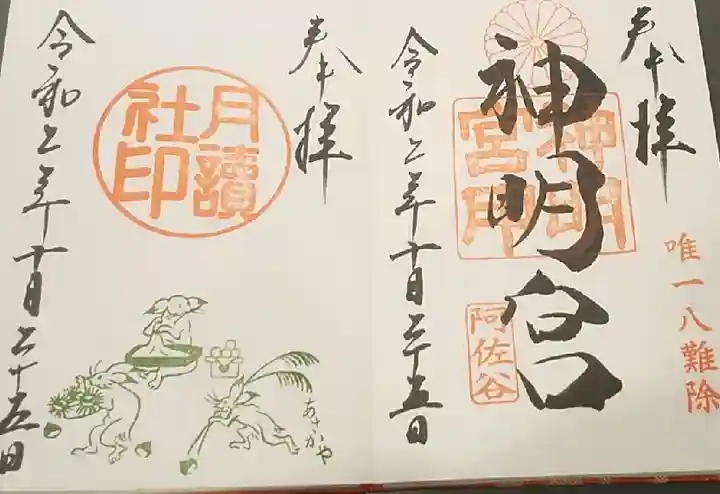 奉拝
唯一八難除
神明宮
神明
宮印
阿佐谷
令和二年十月二十五日
奉拝
月讀
社印
あさがや
令和二年十月二十五日